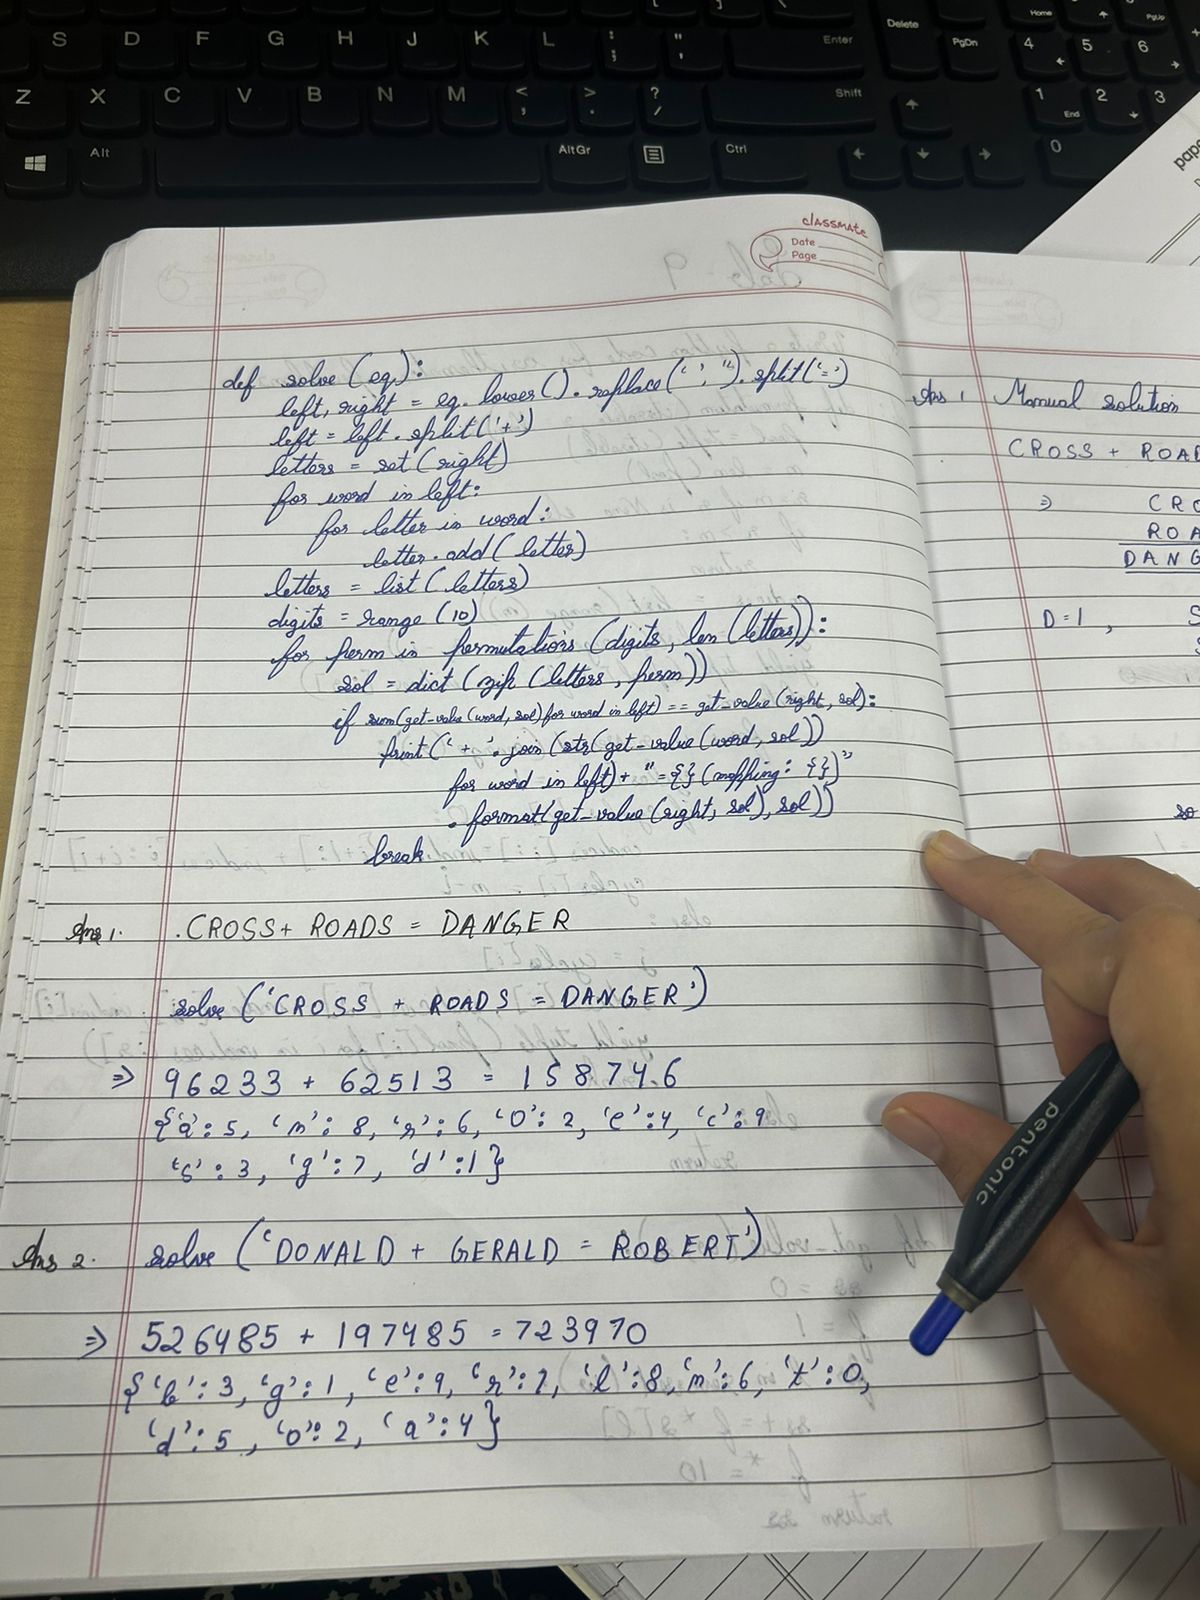 S D F G H J K L : ; " ' Enter Delete PgDn Home PgUp 4 5 6
Z X C V B N M < , > . ? / Shift 1 End 2 3
Alt AltGr Ctrl 0
classmate
Date
Page
def solve (eq):
left, right = eq. lower(). replace(' ', ''). split('=')
left = left. split('+')
letters = set (right)
for word in left:
for letter in word:
letter. add( letter)
letters = list (letters)
digits = range (10)
for perm in permutations (digits, len (letters)):
sol = dict (zip (letters, perm))
if sum(get-value (word, sol) for word in left) == get-value (right, sol):
print(' + '. join (str( get-value (word, sol))
for word in left) + "= {} (mapping: {})"
. format( get-value (right, sol), sol))
break
Ans 1. .CROSS+ ROADS = DANGER
solve ('CROSS + ROADS = DANGER')
⇒ 96233 + 62513 = 158746
{'a': 5, 'n': 8, 'r': 6, 'o': 2, 'e': 4, 'c': 9
's': 3, 'g': 7, 'd': 1}
Ans 2. solve ('DONALD + GERALD = ROBERT')
⇒ 526485 + 197485 = 723970
{'b': 3, 'g': 1, 'e': 9, 'r': 7, 'l': 8, 'n': 6, 't': 0,
'd': 5, 'o': 2, 'a': 4}
Ans 1 Manual solution
CROSS + ROAD
⇒ CRO
ROA
DANG
D = 1, S
so
pentonic